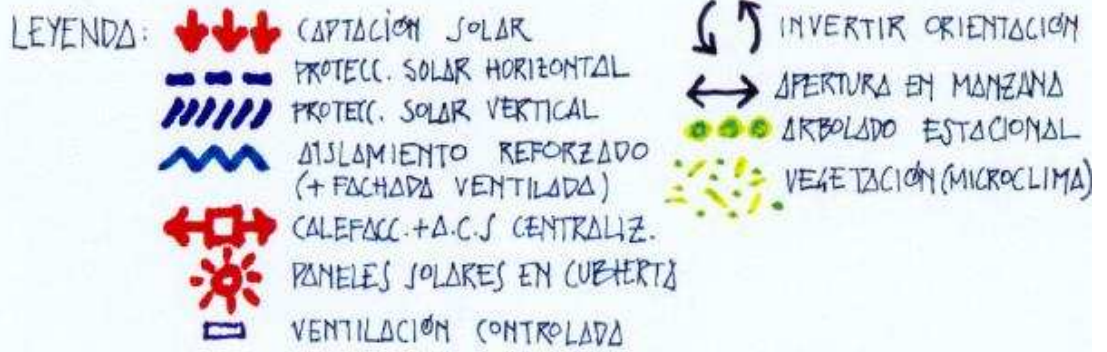 LEYENDA:
CAPTACIÓN SOLAR
PROTECC. SOLAR HORIZONTAL
PROTECC. SOLAR VERTICAL
AISLAMIENTO REFORZADO
(+ FACHADA VENTILADA)
CALEFACC.+A.C.S CENTRALIZ.
PANELES SOLARES EN CUBIERTA
VENTILACIÓN CONTROLADA
INVERTIR ORIENTACIÓN
APERTURA EN MANZANA
ARBOLADO ESTACIONAL
VEGETACIÓN (MICROCLIMA)